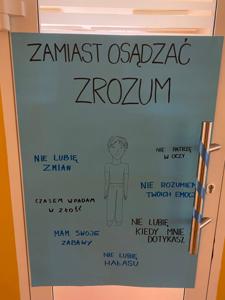 ZAMIAST OSĄDZAĆ
ZROZUM
NIE PATRZĘ
W OCZY
NIE LUBIĘ
ZMIAN
NIE ROZUMIEM
TWOICH EMOCJI
CZASEM WPADAM
W ZŁOŚĆ
NIE LUBIĘ
KIEDY MNIE
DOTYKASZ
MAM SWOJE
ZABAWY
NIE LUBIĘ
HAŁASU